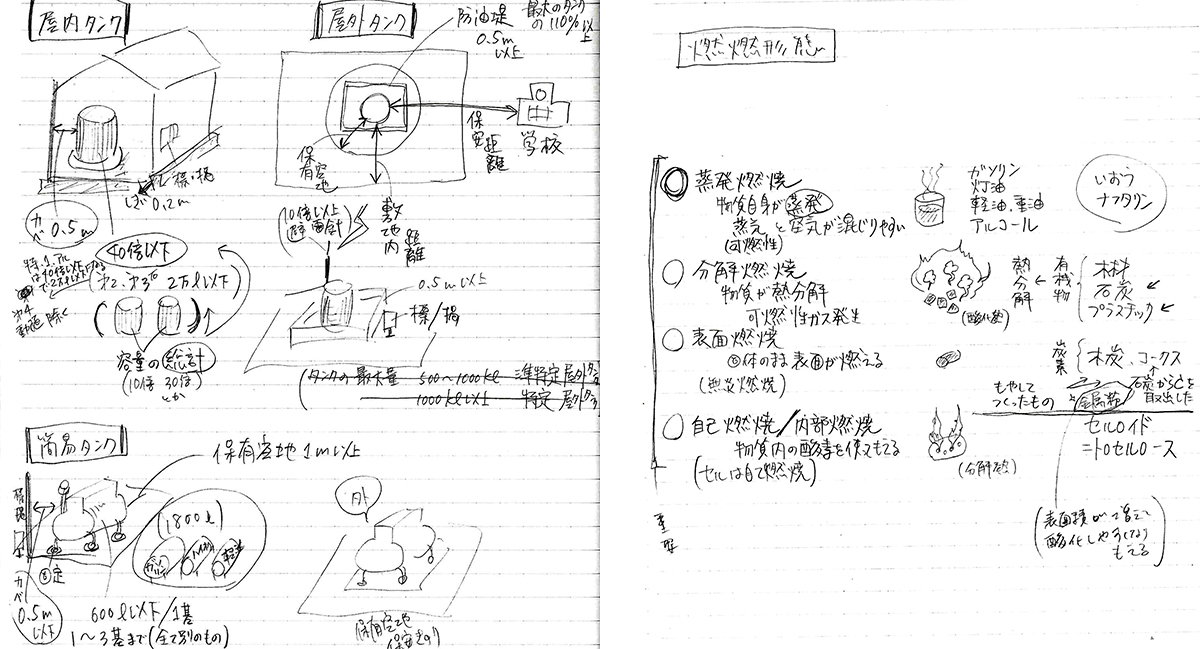 屋内タンク
カベ 0.5m
標・掲
しきい 0.2m
40倍以下
(第2、第3石 2万l以下)
動植 除く
容量の総計
(10倍 30倍)
とか
屋外タンク
防油堤
0.5m
以上
最大のタンク
の110%以上
保安距離
学校
保有空地
敷地内
距離
10倍以上
避雷針
0.5m以上
標/掲
(タンクの最大量 500〜1000kl 準特定屋外タンク
1000kl以上 特定屋外タンク
簡易タンク
保有空地1m以上
標掲
固定
カベ
0.5m
以上
1800l
ガソリン
軽油
600l以下/1基
1〜3基まで(全て別のもの)
外
保有空地
燃燃形態
蒸発燃焼
物質自身が蒸発
蒸気と空気が混じりやすい
(可燃性)
ガソリン
灯油
軽油、重油
アルコール
いおう
ナフタリン
分解燃焼
物質が熱分解
可燃性ガス発生
熱分解
有機物
木材
石炭
プラスチック
表面燃焼
固体のまま表面が燃える
(無炎燃焼)
炭素
木炭、コークス
もやして
つくったもの
金属粉
石炭からCを
取出した
自己燃焼/内部燃焼
物質内の酸素を使ってもえる
(セルは自己燃焼)
(分解燃)
セルロイド
ニトロセルロース
(表面積がでかくて
酸化しやすくなり
もえる)